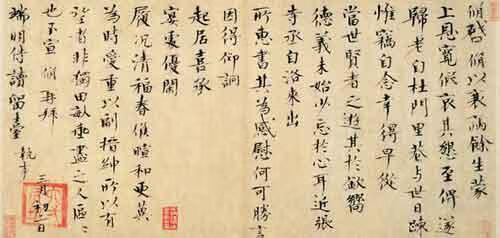 脩啓脩以衰病餘生蒙
上恩寬假哀其懇至俾遂
歸老自杜門里巷與世日疎
惟竊自念幸得早從
當世賢者之遊其於欽嚮
德義未始少忘於心耳近張
寺丞自洛來出
所惠書其為感慰何可勝言
因得仰詢
起居喜承
宴處優閑
履況清福春候暄和更冀
為時愛重以副搢紳所以有
望者非獨田畝垂盡之人區區
也不宣脩再拜
端明侍讀留臺執事
三月初二日